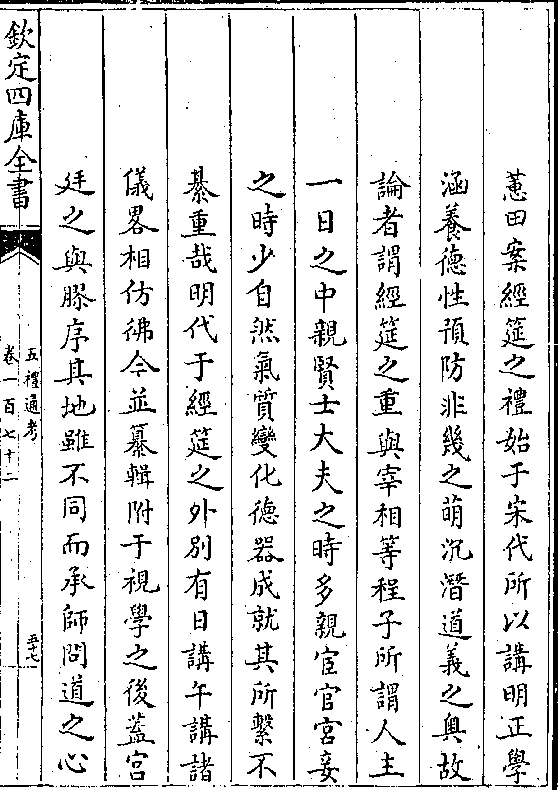 蕙田案經筵之禮始于宋代所以講明正學
涵養德性預防非幾之萌沉潛道義之奥故
論者謂經筵之重與宰相等程子所謂人主
一日之中親賢士大夫之時多親宦官宫妾
之時少自然氣質變化德器成就其所繫不
綦重哉明代于經筵之外别有日講午講諸
儀畧相仿彿今並纂輯附于視學之後蓋宫
廷之與膠序其地雖不同而承師問道之心
欽定四庫全書
五禮通考
卷一百七十二
五十七